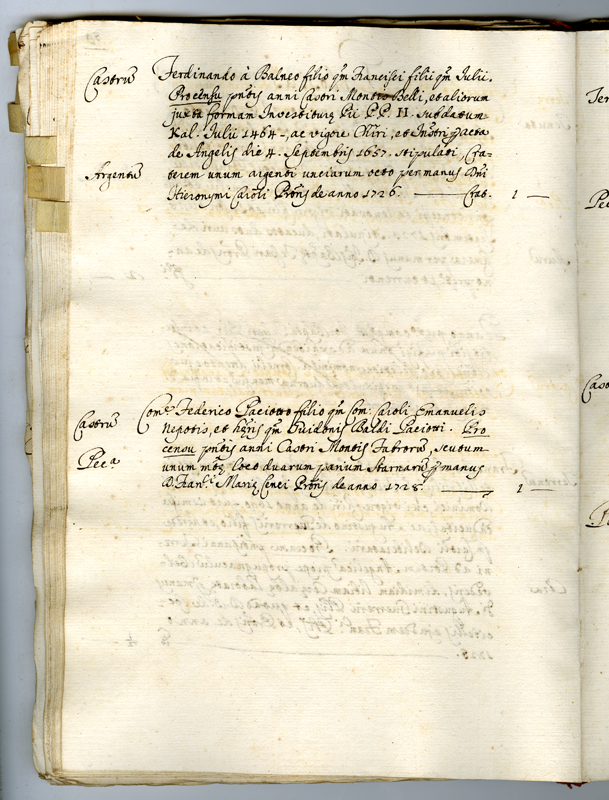 Castrũ
Ferdinando à Balneo filio qm̃ Francisci filii qm̃ Iulii.
Pro censu pñtis anni Castri Montis Belli, et aliorum
juxta formam Investituræ Pii P.P. II. sub datum
Kal. Iulii 1464 - ac vigore Chiri, et Instri p acta
de Angelis die 4. Septembris 1657. stipulati, Cra-
Argentũ
terem unum argenti unciarum octo per manus Dñi
Hieronymi Caroli Prõris de anno 1726. Crat. 1 —
Castrũ
Comᵉ Federico Paciotto filio qm̃ Com: Caroli Emanuelis
Nepotis, et hæris qm̃ Guidonis Baldi Paciotti. Pro
censu pñtis anni Castri Montis Fabrorũ, scutum
Pecᵃ
unum mtæ loco duarum parium Starnarũ p manus
D. Franᶜⁱ Mariæ Cenci Prõris de anno 1728. — 1 —